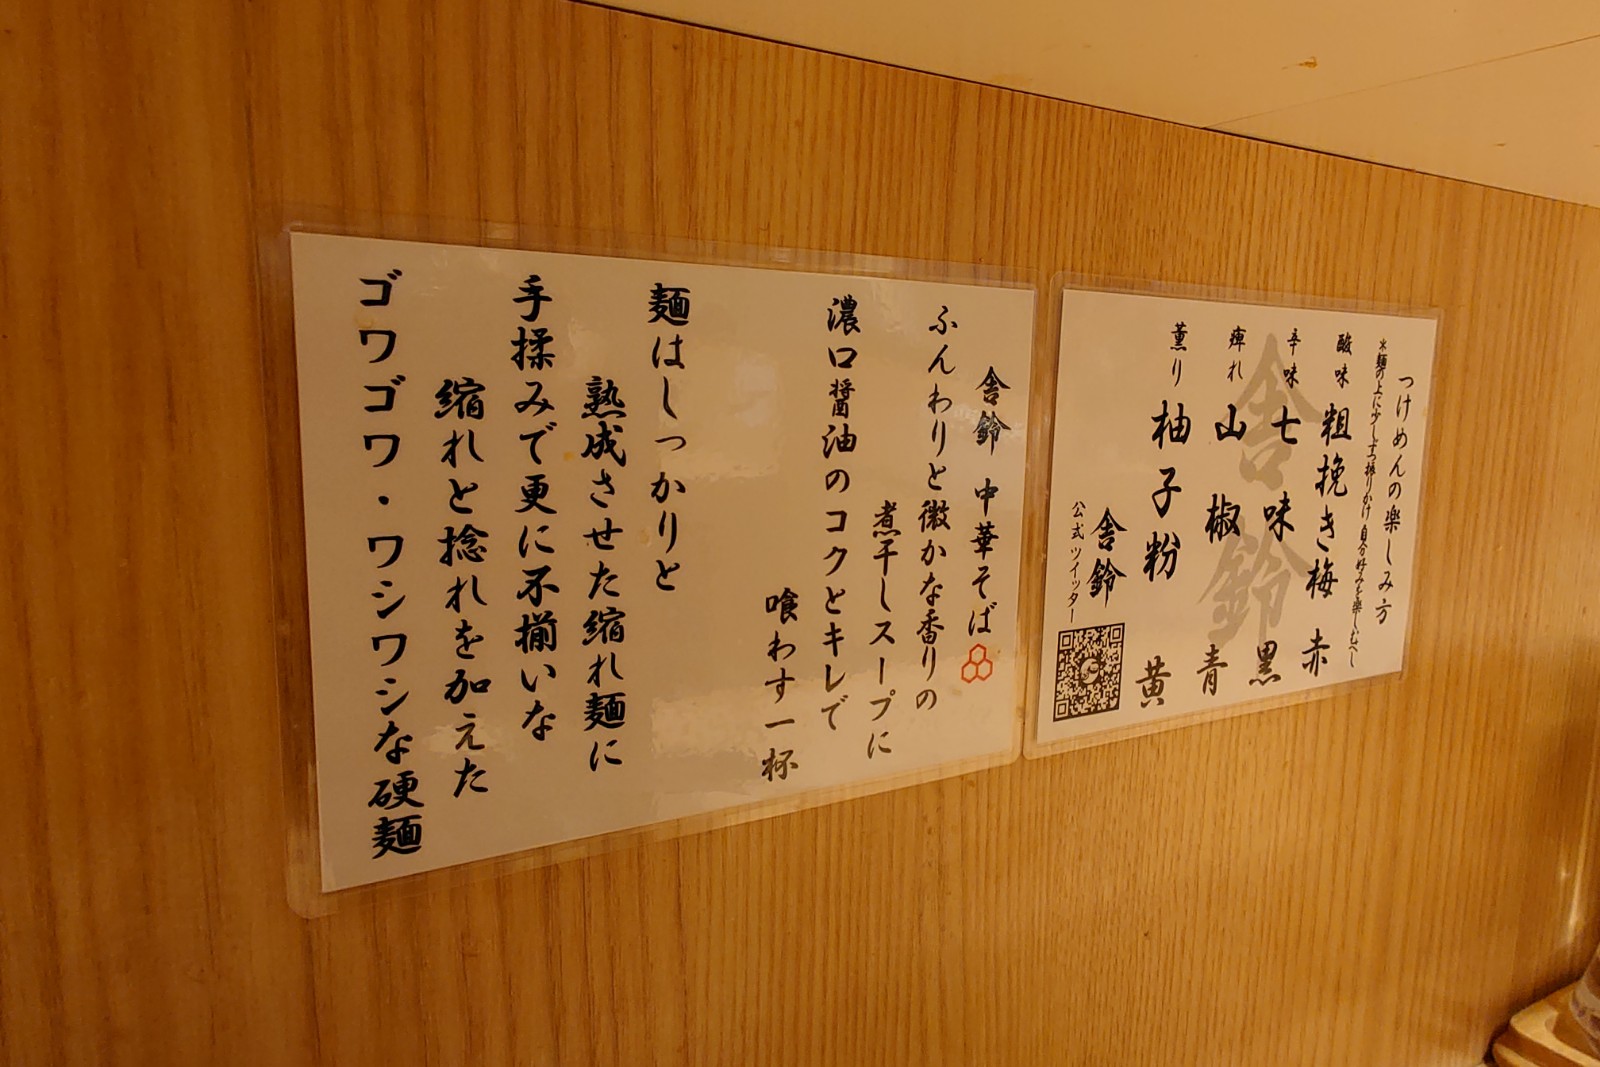 つけめんの楽しみ方
※麺の上に少しずつ振りかけ自分好みを楽しむべし
酸味 粗挽き梅 赤
辛味 七味 黒
痺れ 山椒 青
薫り 柚子粉 黄
舎鈴
公式ツイッター
舎鈴
舎鈴 中華そば
ふんわりと微かな香りの
煮干しスープに
濃口醤油のコクとキレで
喰わす一杯
麺はしっかりと
熟成させた縮れ麺に
手揉みで更に不揃いな
縮れと捻れを加えた
ゴワゴワ・ワシワシな硬麺